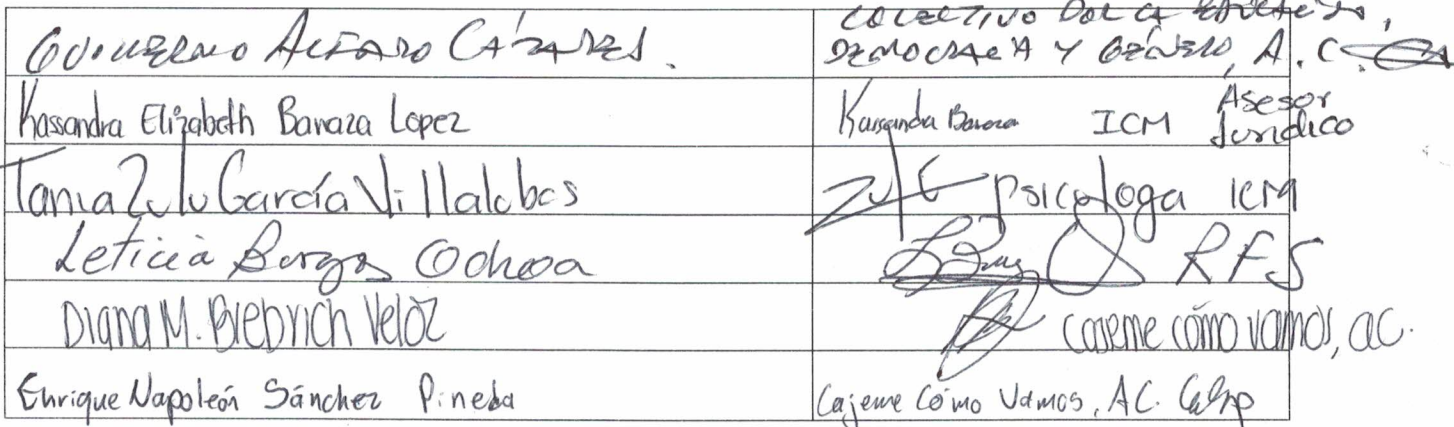 GUILLERMO ALFARO CÁZARES.
COLECTIVO POR LA
DEMOCRACIA Y GÉNERO, A.C.
Kassandra Elizabeth Baraza Lopez
Kassandra Baraza ICM Asesor Jurídico
Tania Zulu García Villalobos
psicologa ICM
Leticia Burgos Ochoa
RFS
Diana M. Brebrich Veloz
cajeme cómo vamos, ac.
Enrique Napoleón Sánchez Pineda
Cajeme Cómo Vamos, AC.